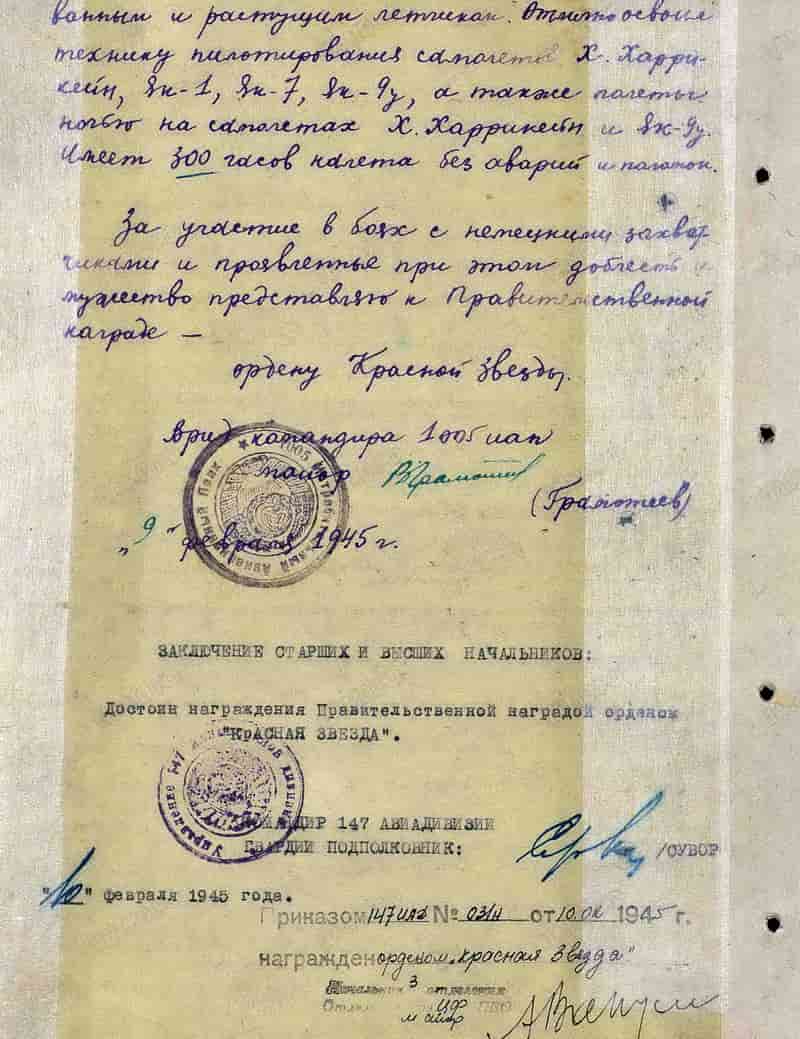 ванным и растущим летчикам. Отлично освоил
технику пилотирования самолетов Х. Харри-
кейн, Як-1, Як-7, Як-9у, а также полеты
ночью на самолетах Х. Харрикейн и Як-9у.
Имеет 300 часов налета без аварий и поломок.
За участие в боях с немецкими захват-
чиками и проявленные при этом доблесть и
мужество представляю к Правительственной
награде —
ордену Красной Звезды.
Врид командира 1005 иап
майор
(Грамотеев)
1005 Истребительный Авиационный Полк
"9" февраля 1945 г.
ЗАКЛЮЧЕНИЕ СТАРШИХ И ВЫСШИХ НАЧАЛЬНИКОВ:
Достоин награждения Правительственной наградой орденом
"КРАСНАЯ ЗВЕЗДА".
Управление 147
КОМАНДИР 147 АВИАДИВИЗИИ
ГВАРДИИ ПОДПОЛКОВНИК:
/СУВОР
"10" февраля 1945 года.
Приказом 147 иад № 03/н от 10.02 1945 г.
награжден орденом "Красная Звезда"
Начальник 3 отделения
майор